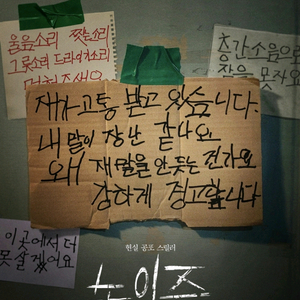 울음소리 짖는소리
그릇소리 드라이소리
멈춰주세요
층간소음으로
잠을 못자요
제가 고통 받고 있습니다.
내 말이 장난 같나요
왜 제 말을 안듣는 건가요
강하게 경고합니다
이곳에서 더
못살겠어요
현실 공포 스릴러
노이즈